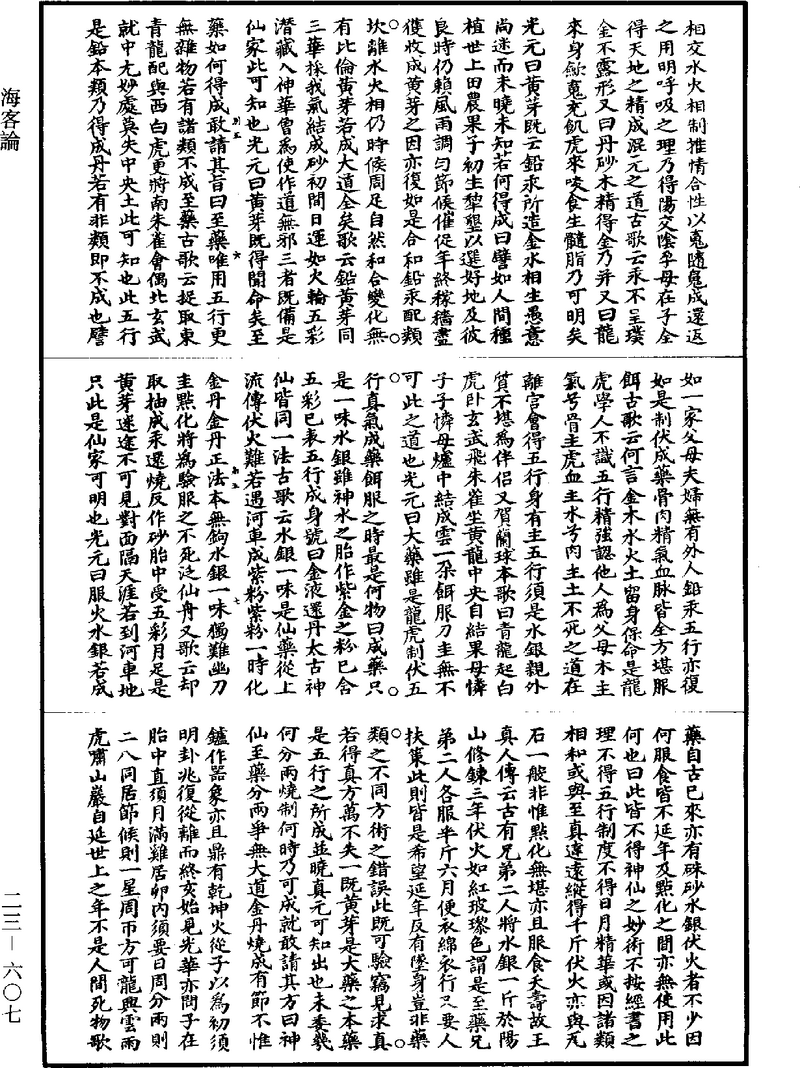 海客論
二三—六〇七
相交水火相制推情合性以䰟隨䰟成還返
之用明呼吸之理乃得陽交陰孚母在子全
得天地之精成混元之道古歌云汞不呈璞
金不露形又曰丹砂木精得金乃并又曰龍
來身歛䰟充飢虎來咬食生髓脂乃可明矣
光元曰黃芽既云鉛汞所造金水相生愚意
尚迷而未曉未知若何得成曰譬如人間種
植世上田農果子初生犂墾以選好地及彼
良時仍賴風雨調勻節候催促年終稼穡盡
獲收成黃芽之因亦復如是合和鉛汞配類
坎離水火相仍時候周足自然和合變化無
有比倫黃芽若成大道全矣歌云鉛黃芽同
三華採我氣結成砂初間日運如火輪五彩
潛藏入神華曾為使作道無邪三者既備是
仙家此可知也光元曰黃芽既得聞命矣至
藥如何得成敢請其旨曰至藥唯用五行更
無雜物若有諸類不成至藥古歌云捉取東
青龍配與西白虎更將南朱雀會偶北玄武
就中尢妙處莫失中央土此可知也此五行
是鉛本類乃得成丹若有非類即不成也譬
如一家父母夫婦無有外人鉛汞五行亦復
如是制伏成藥骨肉精氣血脉皆全方堪服
餌古歌云何言金木水火土留身保命是龍
虎學人不識五行精強認他人為父母木主
氣兮骨主虎血主水兮肉主土不死之道在
離宮會得五行身有主五行須是水銀親外
質不堪為伴侶又賀蘭球本歌曰青龍起白
虎卧玄武飛朱雀坐黃龍中央自結果母憐
子子憐母爐中結成雲一朶餌服刀圭無不
可此之道也光元曰大藥雖是龍虎制伏五
行真氣成藥餌服之時最是何物曰成藥只
是一味水銀雖神水之胎作紫金之粉已含
五彩已表五行成身號曰金液還丹太古神
仙皆同一法古歌云水銀一味是仙藥從上
流傳伏火難若遇河車成紫粉紫粉一時化
金丹金丹正法本無鉤水銀一味獨難幽刀
圭點化將為驗服之不死泛仙舟又歌云却
取抽成汞還燒反作砂胎中受五彩月足是
黃芽迷途不可見對面隔天涯若到河車地
只此是仙家可明也光元曰服火水銀若成
藥自古已來亦有硃砂水銀伏火者不少因
何服食皆不延年及點化之間亦無使用此
何也曰此皆不得神仙之妙術不按經書之
理不得五行制度不得日月精華或因諸類
相和或與至真違遠縱得千斤伏火亦與凡
石一般非惟點化無堪亦且服食夭壽故王
真人傳云古有兄弟二人將水銀一斤於陽
山修鍊三年伏火如紅玻瓈色謂是至藥兄
弟二人各服半斤六月便衣綿衣行又要人
扶策此則皆是希望延年反有墜身豈非藥
類之不同方術之錯誤此既可驗竊見求真
若得真方萬不失一既黃芽是大藥之本藥
是五行之所成並曉真元可知出也未委幾
何分兩燒制何時乃可成就敢請其方曰神
仙至藥分兩爭無大道金丹燒成有節不惟
鑪作器象亦且鼎有乾坤火從子以為初須
明卦兆復從離而終亥始見光華亦問子在
胎中直須月滿雞居卵內須要日周分兩則
二八同居節候則一星周帀方可龍興雲雨
虎嘯山巖自延世上之年不是人間死物歌